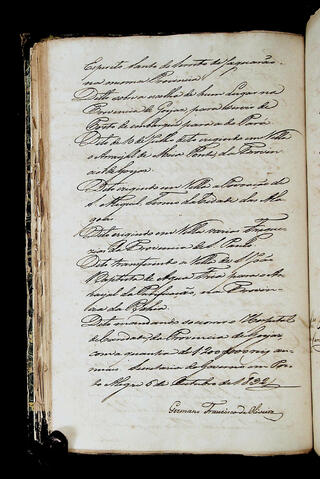 Espirito Santo do Serrito de Jaguarão
na mesma Provincia
Dito sobre a escolha de hum lugar na
Provincia de Goyaz, para servir de
Porto de embarque para a do Pará
Dito de 10 de Julho erigindo em Villa
o Arrayal de Meia Ponte, da Provin
cia de Goyaz.
Dito erigindo em Villa a Povoação de
S. Miguel, Termo da Cidade das Ala
goas
Dito erigindo em Villas varias Fregue
zias da Provincia de S. Paulo
Dito transferindo a Villa de S. João
Baptista de Agua Fria para o Ar
rayal da Purificação, na Provin
cia da Bahia
Dito mandando soccorrer o Hospital
de Caridade da Provincia de Goyaz
com a quantia de 1200$000 an
nuaes Secretaria do Governo em Por
to Alegre 5 de Outubro de 1832
Germano Francisco de Oliveira